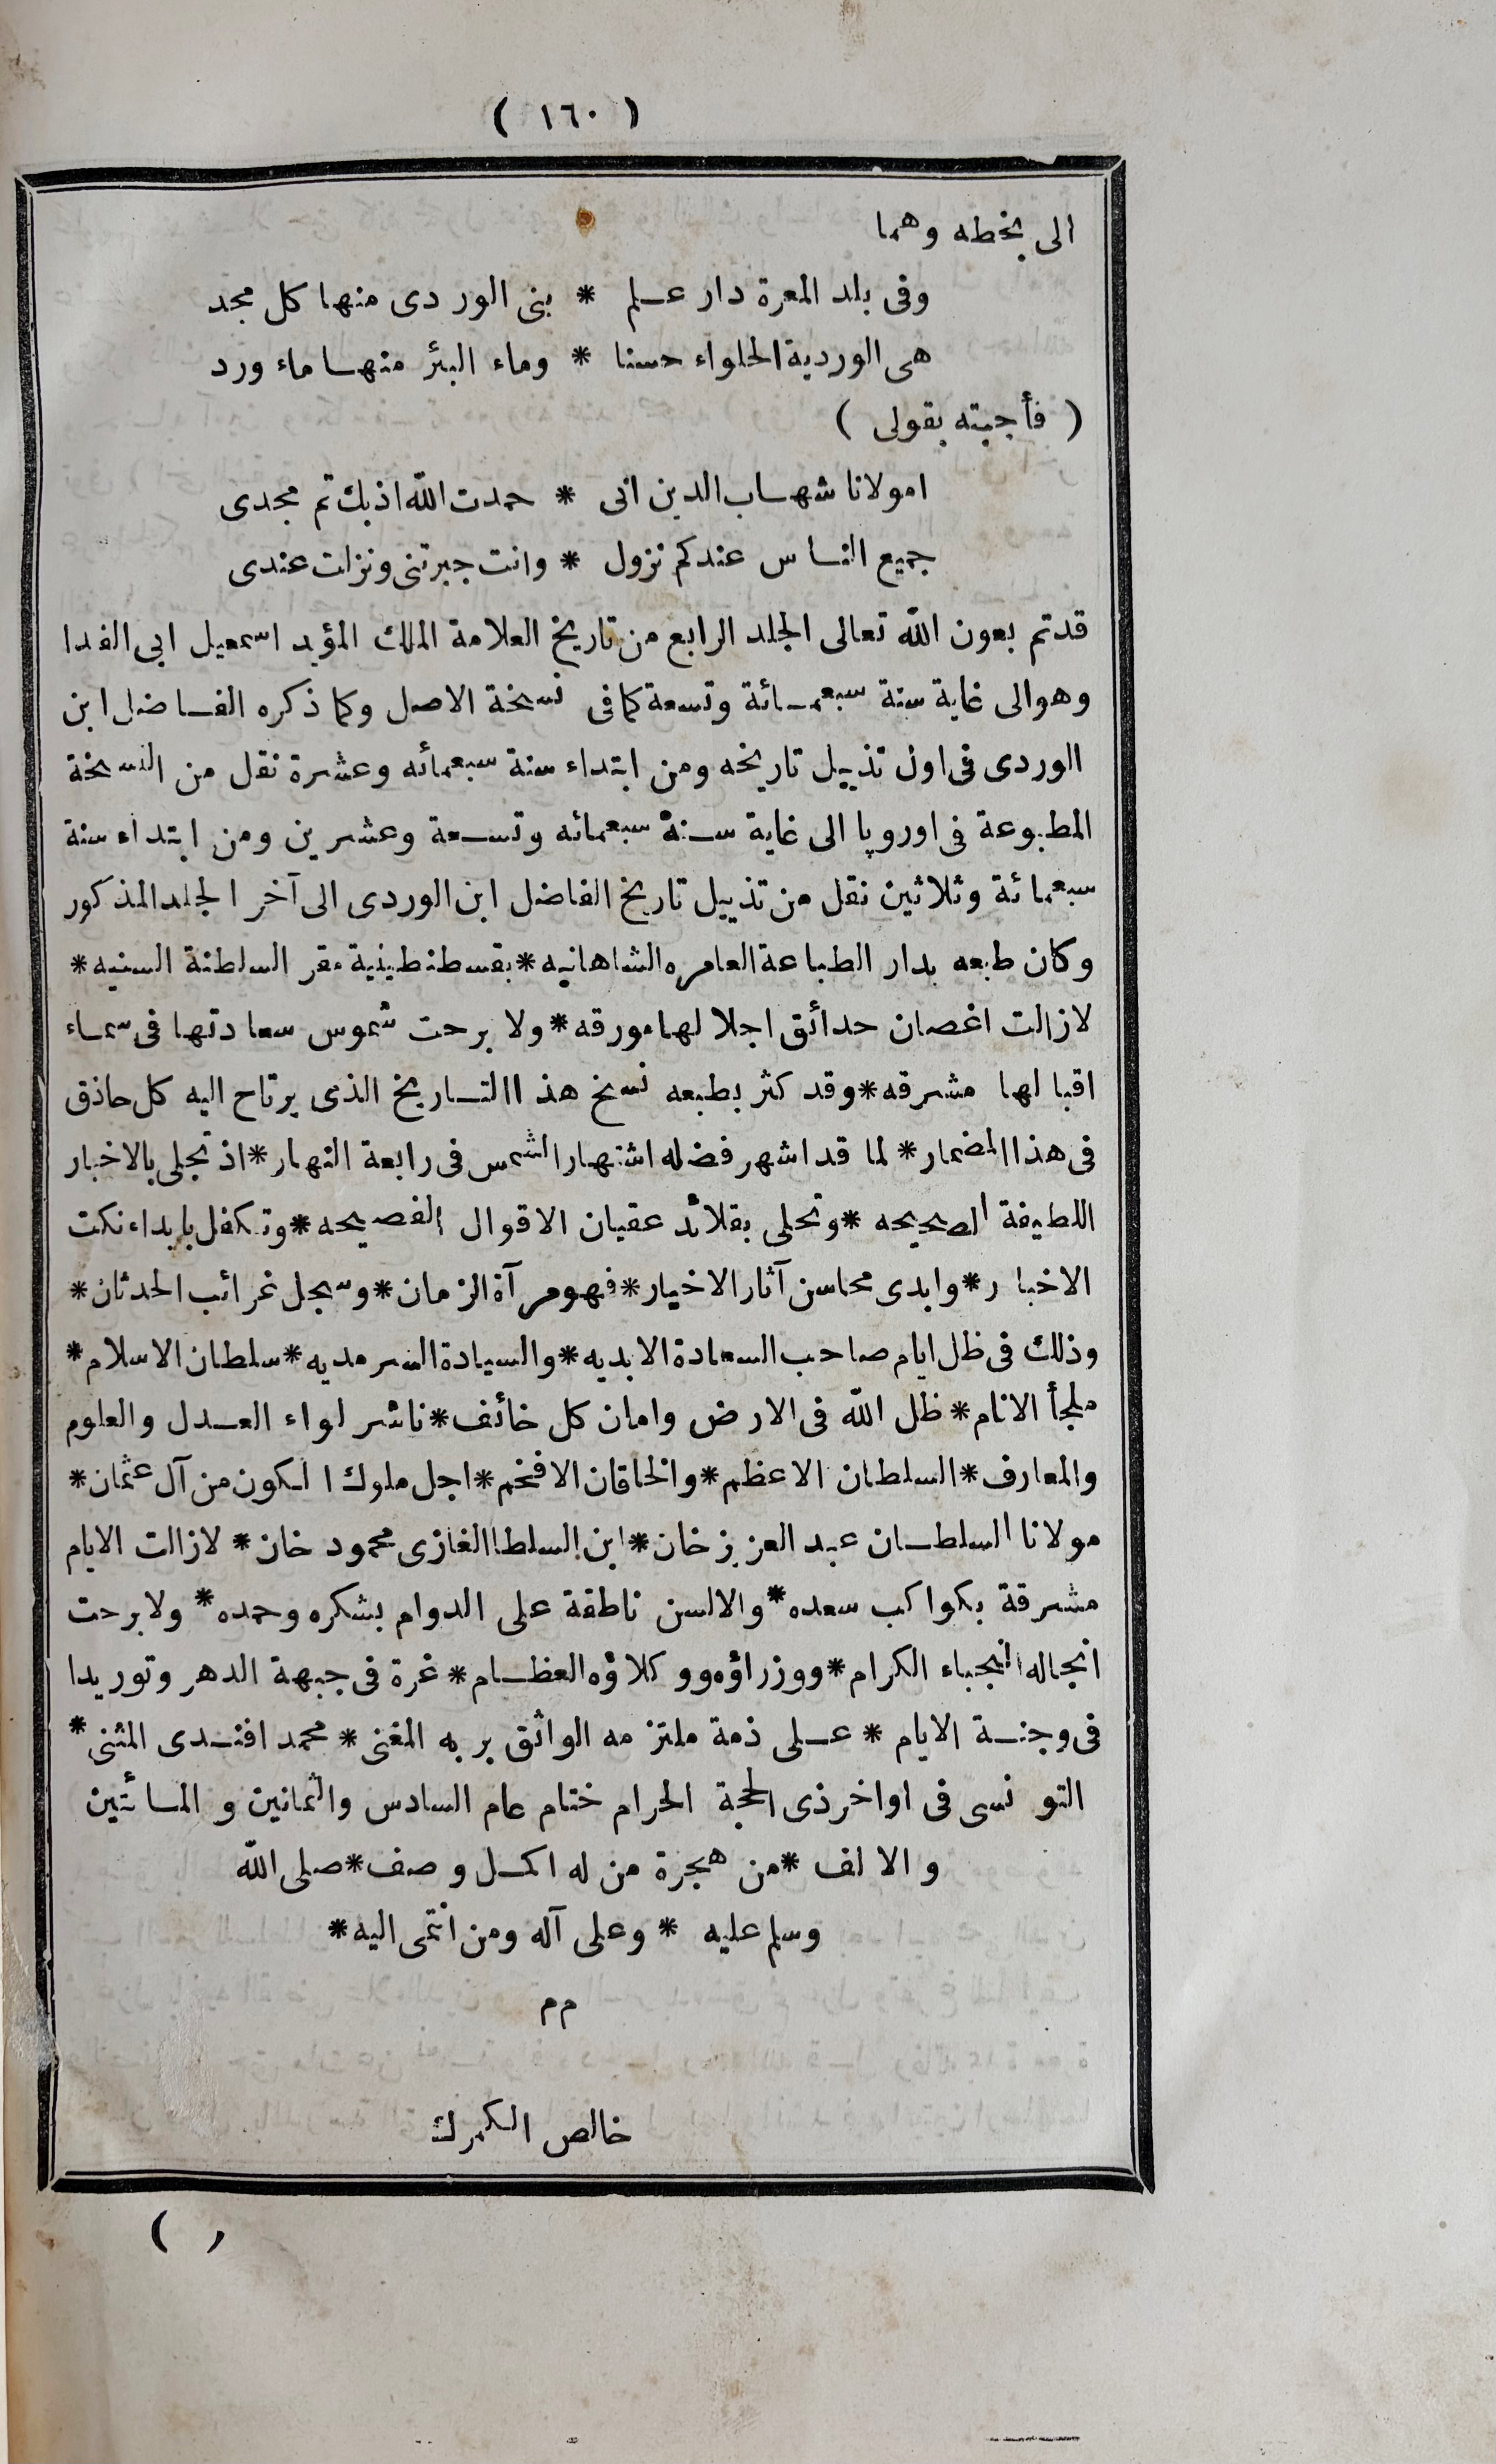 ( ١٦٠ )
الى بخطه وهما
وفى بلد المعرة دار علم * بنى الوردى منها كل مجد
هى الوردية الحلواء حسنا * وماء البئر منها ماء ورد
( فأجبته بقولى )
امولانا شهاب الدين انى * حمدت الله اذ بك تم مجدى
جميع الناس عندكم نزول * وانت جبرتنى ونزلت عندى
قد تم بعون الله تعالى الجلد الرابع من تاريخ العلامة الملك المؤيد اسمعيل ابى الفدا
وهو الى غاية سنة سبعمائة وتسعة كما فى نسخة الاصل وكما ذكره الفاضل ابن
الوردى فى اول تذييل تاريخه ومن ابتداء سنة سبعمائه وعشرة نقل من النسخة
المطبوعة فى اوروپا الى غاية سنة سبعمائه وتسعة وعشرين ومن ابتداء سنة
سبعمائة وثلاثين نقل من تذييل تاريخ الفاضل ابن الوردى الى آخر الجلد المذكور
وكان طبعه بدار الطباعة العامره الشاهانيه * بقسطنطينية مقر السلطنة السنيه *
لازالت اغصان حدائق اجلالها مورقه * ولا برحت شموس سعادتها فى سماء
اقبالها مشرقه * وقد كثر بطبعه نسخ هذا التاريخ الذى يرتاح اليه كل حاذق
فى هذا المضمار * لما قد اشهر فضله اشتهار الشمس فى رابعة النهار * اذ تجلى بالاخبار
اللطيفة الصحيحه * وتحلى بقلائد عقيان الاقوال الفصيحه * وتكفل بابداء نكت
الاخبار * وابدى محاسن آثار الاخيار * فهو مرآة الزمان * وسجل غرائب الحدثان *
وذلك فى ظل ايام صاحب السعادة الابديه * والسيادة السرمديه * سلطان الاسلام *
ملجأ الانام * ظل الله فى الارض وامان كل خائف * ناشر لواء العدل والعلوم
والمعارف * السلطان الاعظم * والخاقان الافخم * اجل ملوك الكون من آل عثمان *
مولانا السلطان عبد العزيز خان * ابن السلطا الغازى محمود خان * لازالت الايام
مشرقة بكواكب سعده * والالسن ناطقة على الدوام بشكره وحمده * ولا برحت
انجاله النجباء الكرام * ووزراؤه ووكلاؤه العظام * غرة فى جبهة الدهر وتوريدا
فى وجنة الايام * على ذمة ملتزمه الواثق بربه المغنى * محمد افندى المثنى *
التونسى فى اواخر ذى الحجة الحرام ختام عام السادس والثمانين والمائتين
والالف * من هجرة من له اكمل وصف * صلى الله
وسلم عليه * وعلى آله ومن انتمى اليه *
م م
خالص الكمرك
( ,